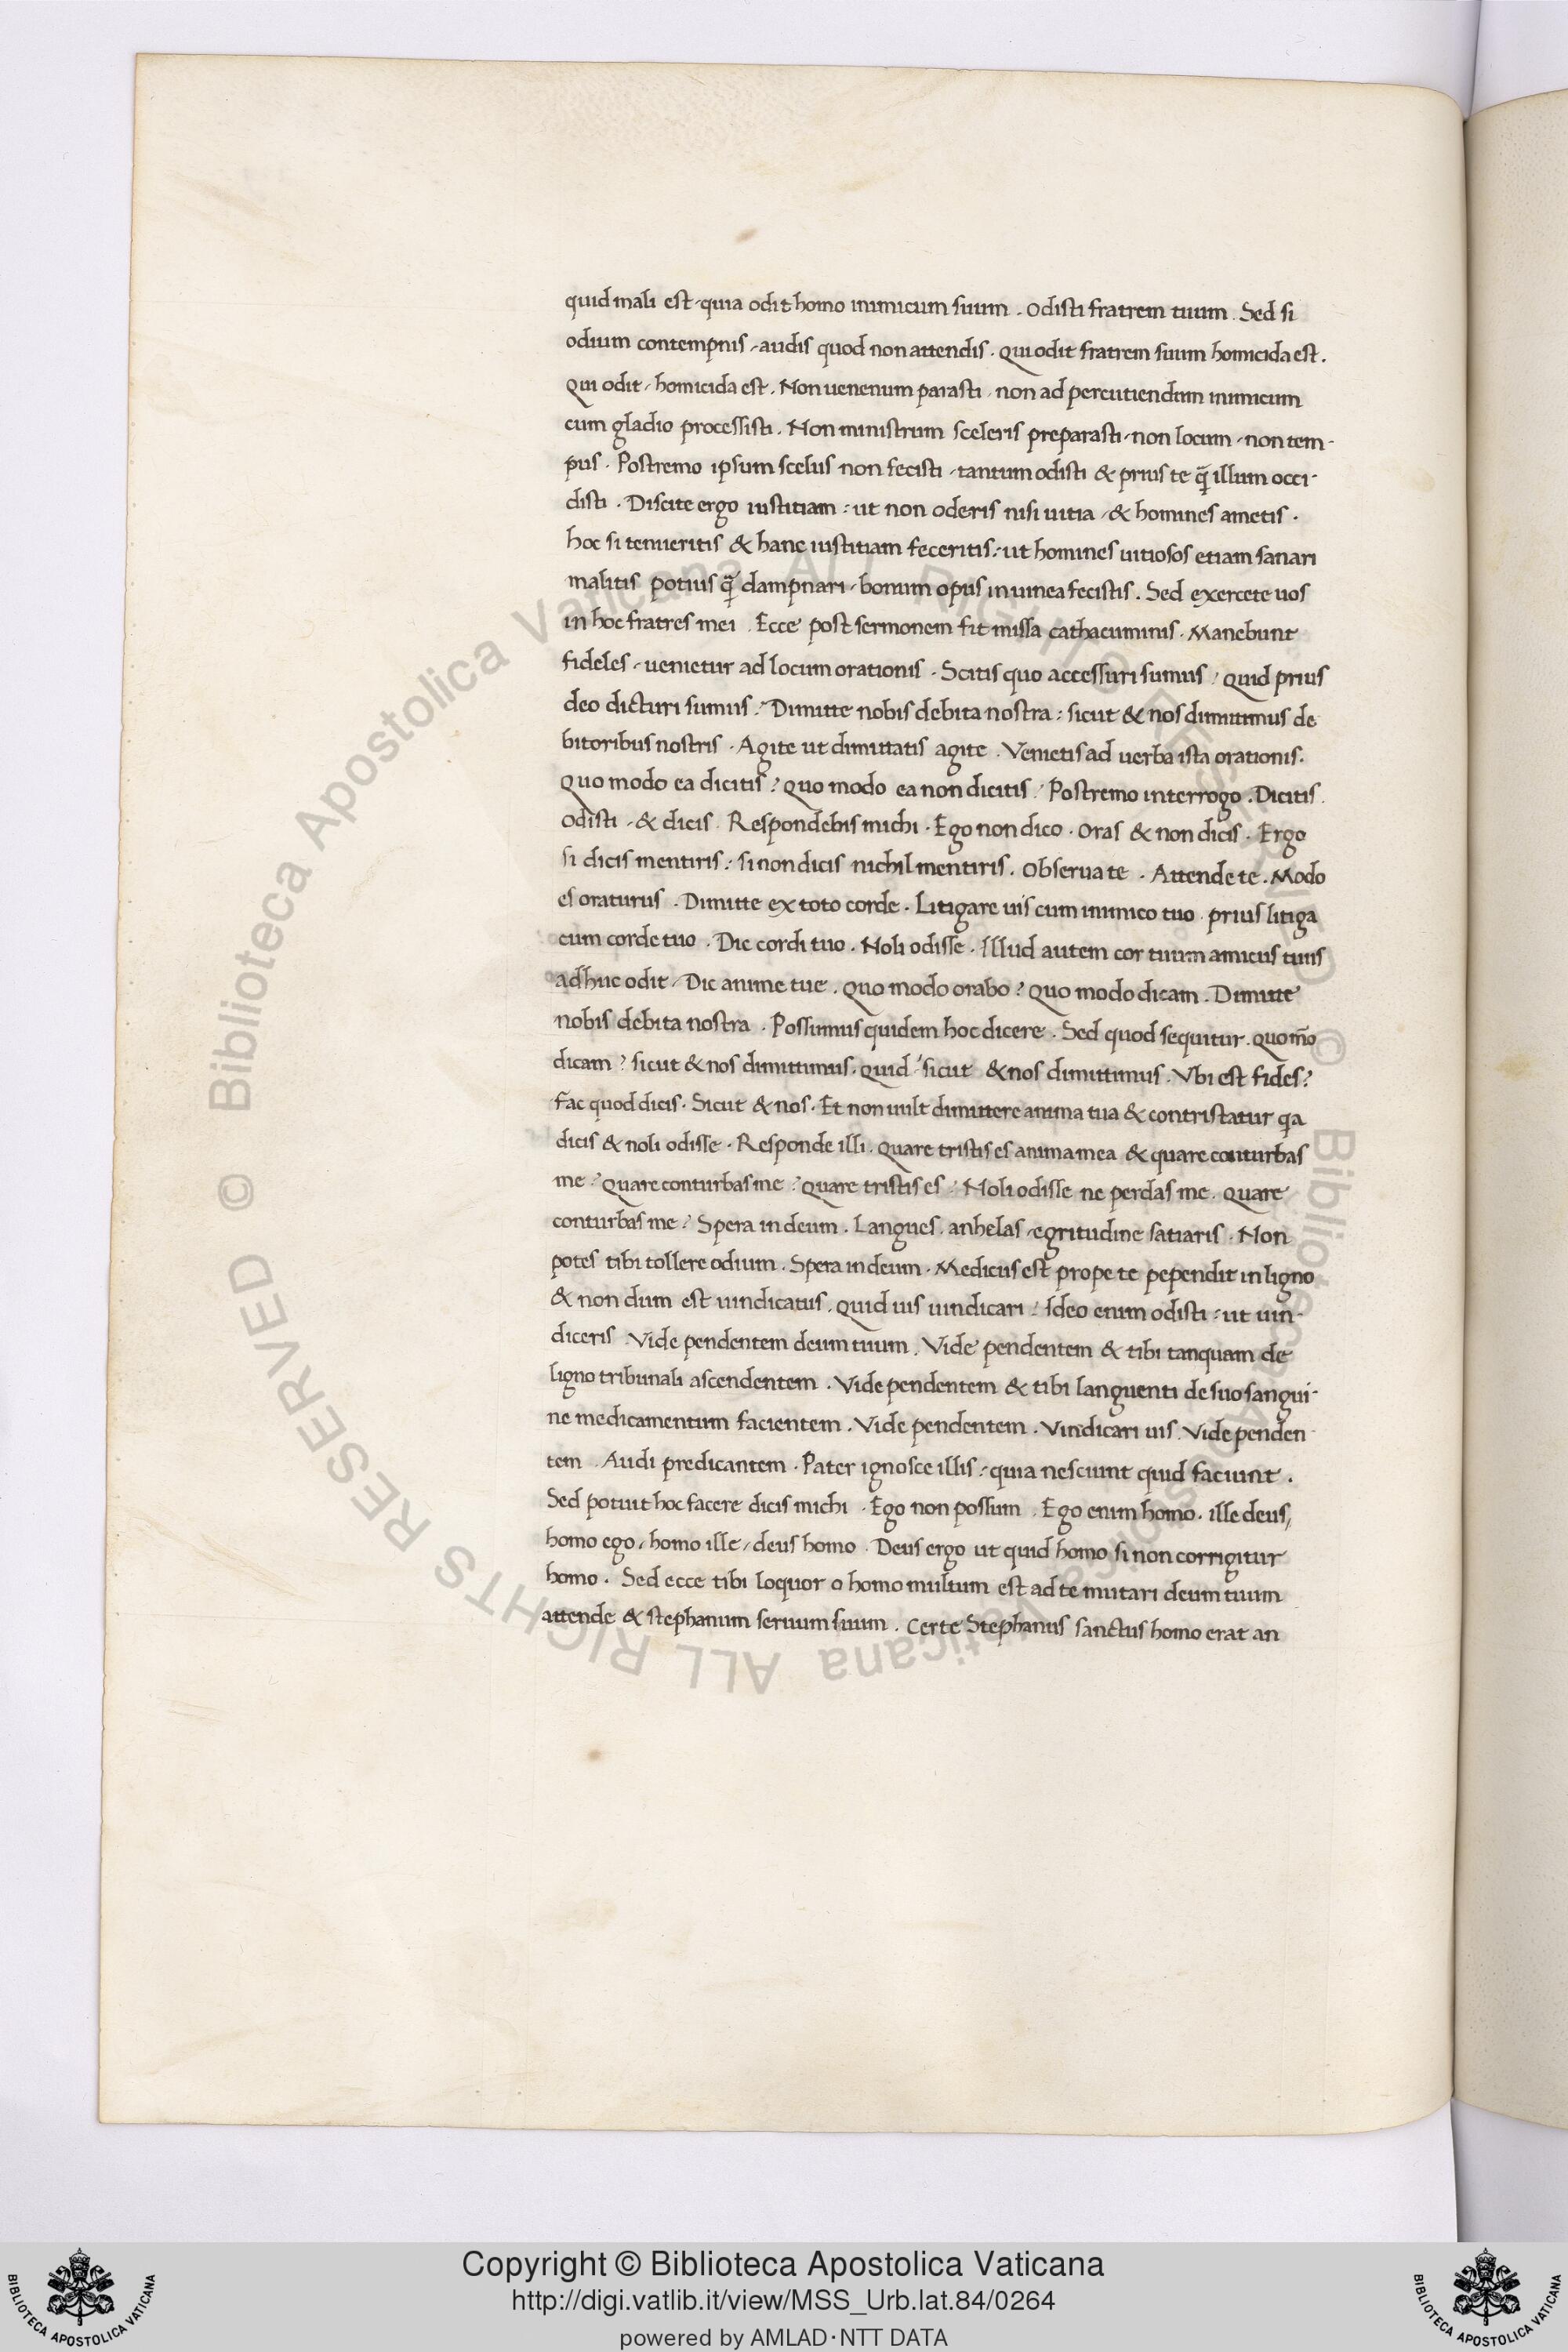 quid mali est, quia odit homo inimicum suum. Odisti fratrem tuum. Sed si
odium contempnis, audis quod non attendis. Qui odit fratrem suum homicida est.
Qui odit, homicida est. Non uenenum parasti, non ad percutiendum inimicum
cum gladio processisti. Non ministrum sceleris preparasti, non locum, non tem-
pus. Postremo ipsum scelus non fecisti, tantum odisti & prius te q̄ illum occi-
disti. Discite ergo iustitiam: ut non oderis nisi uitia, & homines ametis.
hoc si tenueritis & hanc iustitiam feceritis: ut homines uitiosos etiam sanari
malitis potius q̄ dampnari, bonum opus in uinea fecistis. Sed exercete uos
in hoc fratres mei. Ecce post sermonem fit missa cathacuminis. Manebunt
fideles, uenietur ad locum orationis. Scitis quo accessuri sumus? quid prius
deo dicturi sumus? Dimitte nobis debita nostra: sicut & nos dimittimus de
bitoribus nostris. Agite ut dimittatis agite. Venietis ad uerba ista orationis.
Quo modo ea dicitis? quo modo ea non dicitis? Postremo interrogo. Dicitis.
odisti, & dicis. Respondebis michi. Ego non dico. Oras & non dicis. Ergo
si dicis mentiris: si non dicis nichil mentiris. Obserua te. Attende te. Modo
es oraturus. Dimitte ex toto corde. Litigare uis cum inimico tuo. prius litiga
cum corde tuo. Dic cordi tuo. Noli odisse. Illud autem cor tuum amicus tuus
adhuc odit. Dic anime tue. Quo modo orabo? Quo modo dicam. Dimitte
nobis debita nostra. Possumus quidem hoc dicere. Sed quod sequitur. quom̄o
dicam? sicut & nos dimittimus. quid? sicut & nos dimittimus. Vbi est fides?
fac quod dicis. Sicut & nos. Et non uult dimittere anima tua & contristatur qa
dicis & noli odisse. Responde illi. quare tristis es anima mea & quare conturbas
me? Quare conturbas me? Quare tristis es? Noli odisse ne perdas me. quare
conturbas me? Spera in deum. Langues. anhelas, egritudine satiaris. Non
potes tibi tollere odium. Spera in deum. Medicus est prope te pependit in ligno
& non dum est uindicatus. quid uis uindicari? Ideo enim odisti: ut uin-
diceris. Vide pendentem deum tuum. Vide pendentem & tibi tanquam de
ligno tribunali ascendentem. Vide pendentem & tibi languenti de suo sangui-
ne medicamentum facientem. Vide pendentem. Vindicari uis. Vide penden
tem. Audi predicantem. Pater ignosce illis: quia nesciunt quid faciunt.
Sed potuit hoc facere dicis michi. Ego non possum. Ego enim homo. ille deus,
homo ego, homo ille, deus homo. Deus ergo ut quid homo si non corrigitur
homo. Sed ecce tibi loquor o homo multum est ad te mutari deum tuum
attende & stephanum seruum suum. Certe Stephanus sanctus homo erat an
© Biblioteca Apostolica Vaticana ALL RIGHTS RESERVED © Biblioteca Apostolica Vaticana ALL RIGHTS RESERVED
Copyright © Biblioteca Apostolica Vaticana
http://digi.vatlib.it/view/MSS_Urb.lat.84/0264
powered by AMLAD·NTT DATA
BIBLIOTECA APOSTOLICA VATICANA
BIBLIOTECA APOSTOLICA VATICANA